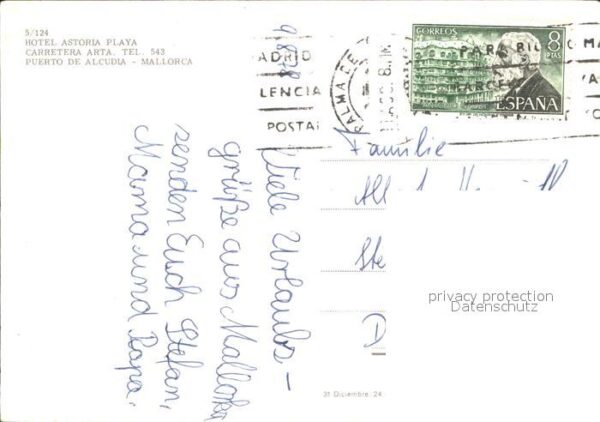 5/124
HOTEL ASTORIA PLAYA
CARRETERA ARTA. TEL. 543
PUERTO DE ALCUDIA - MALLORCA
9.8.78
Viele Urlaubs-
grüße aus Mallorka
senden Euch Stefan,
Mama und Papa.
ADRID
LENCIA
POSTAL
PALMA DE
CORREOS
8
PTAS
ESPAÑA
PARA
Familie
All
Ste
D
privacy protection
Datenschutz
31 Diciembre, 24